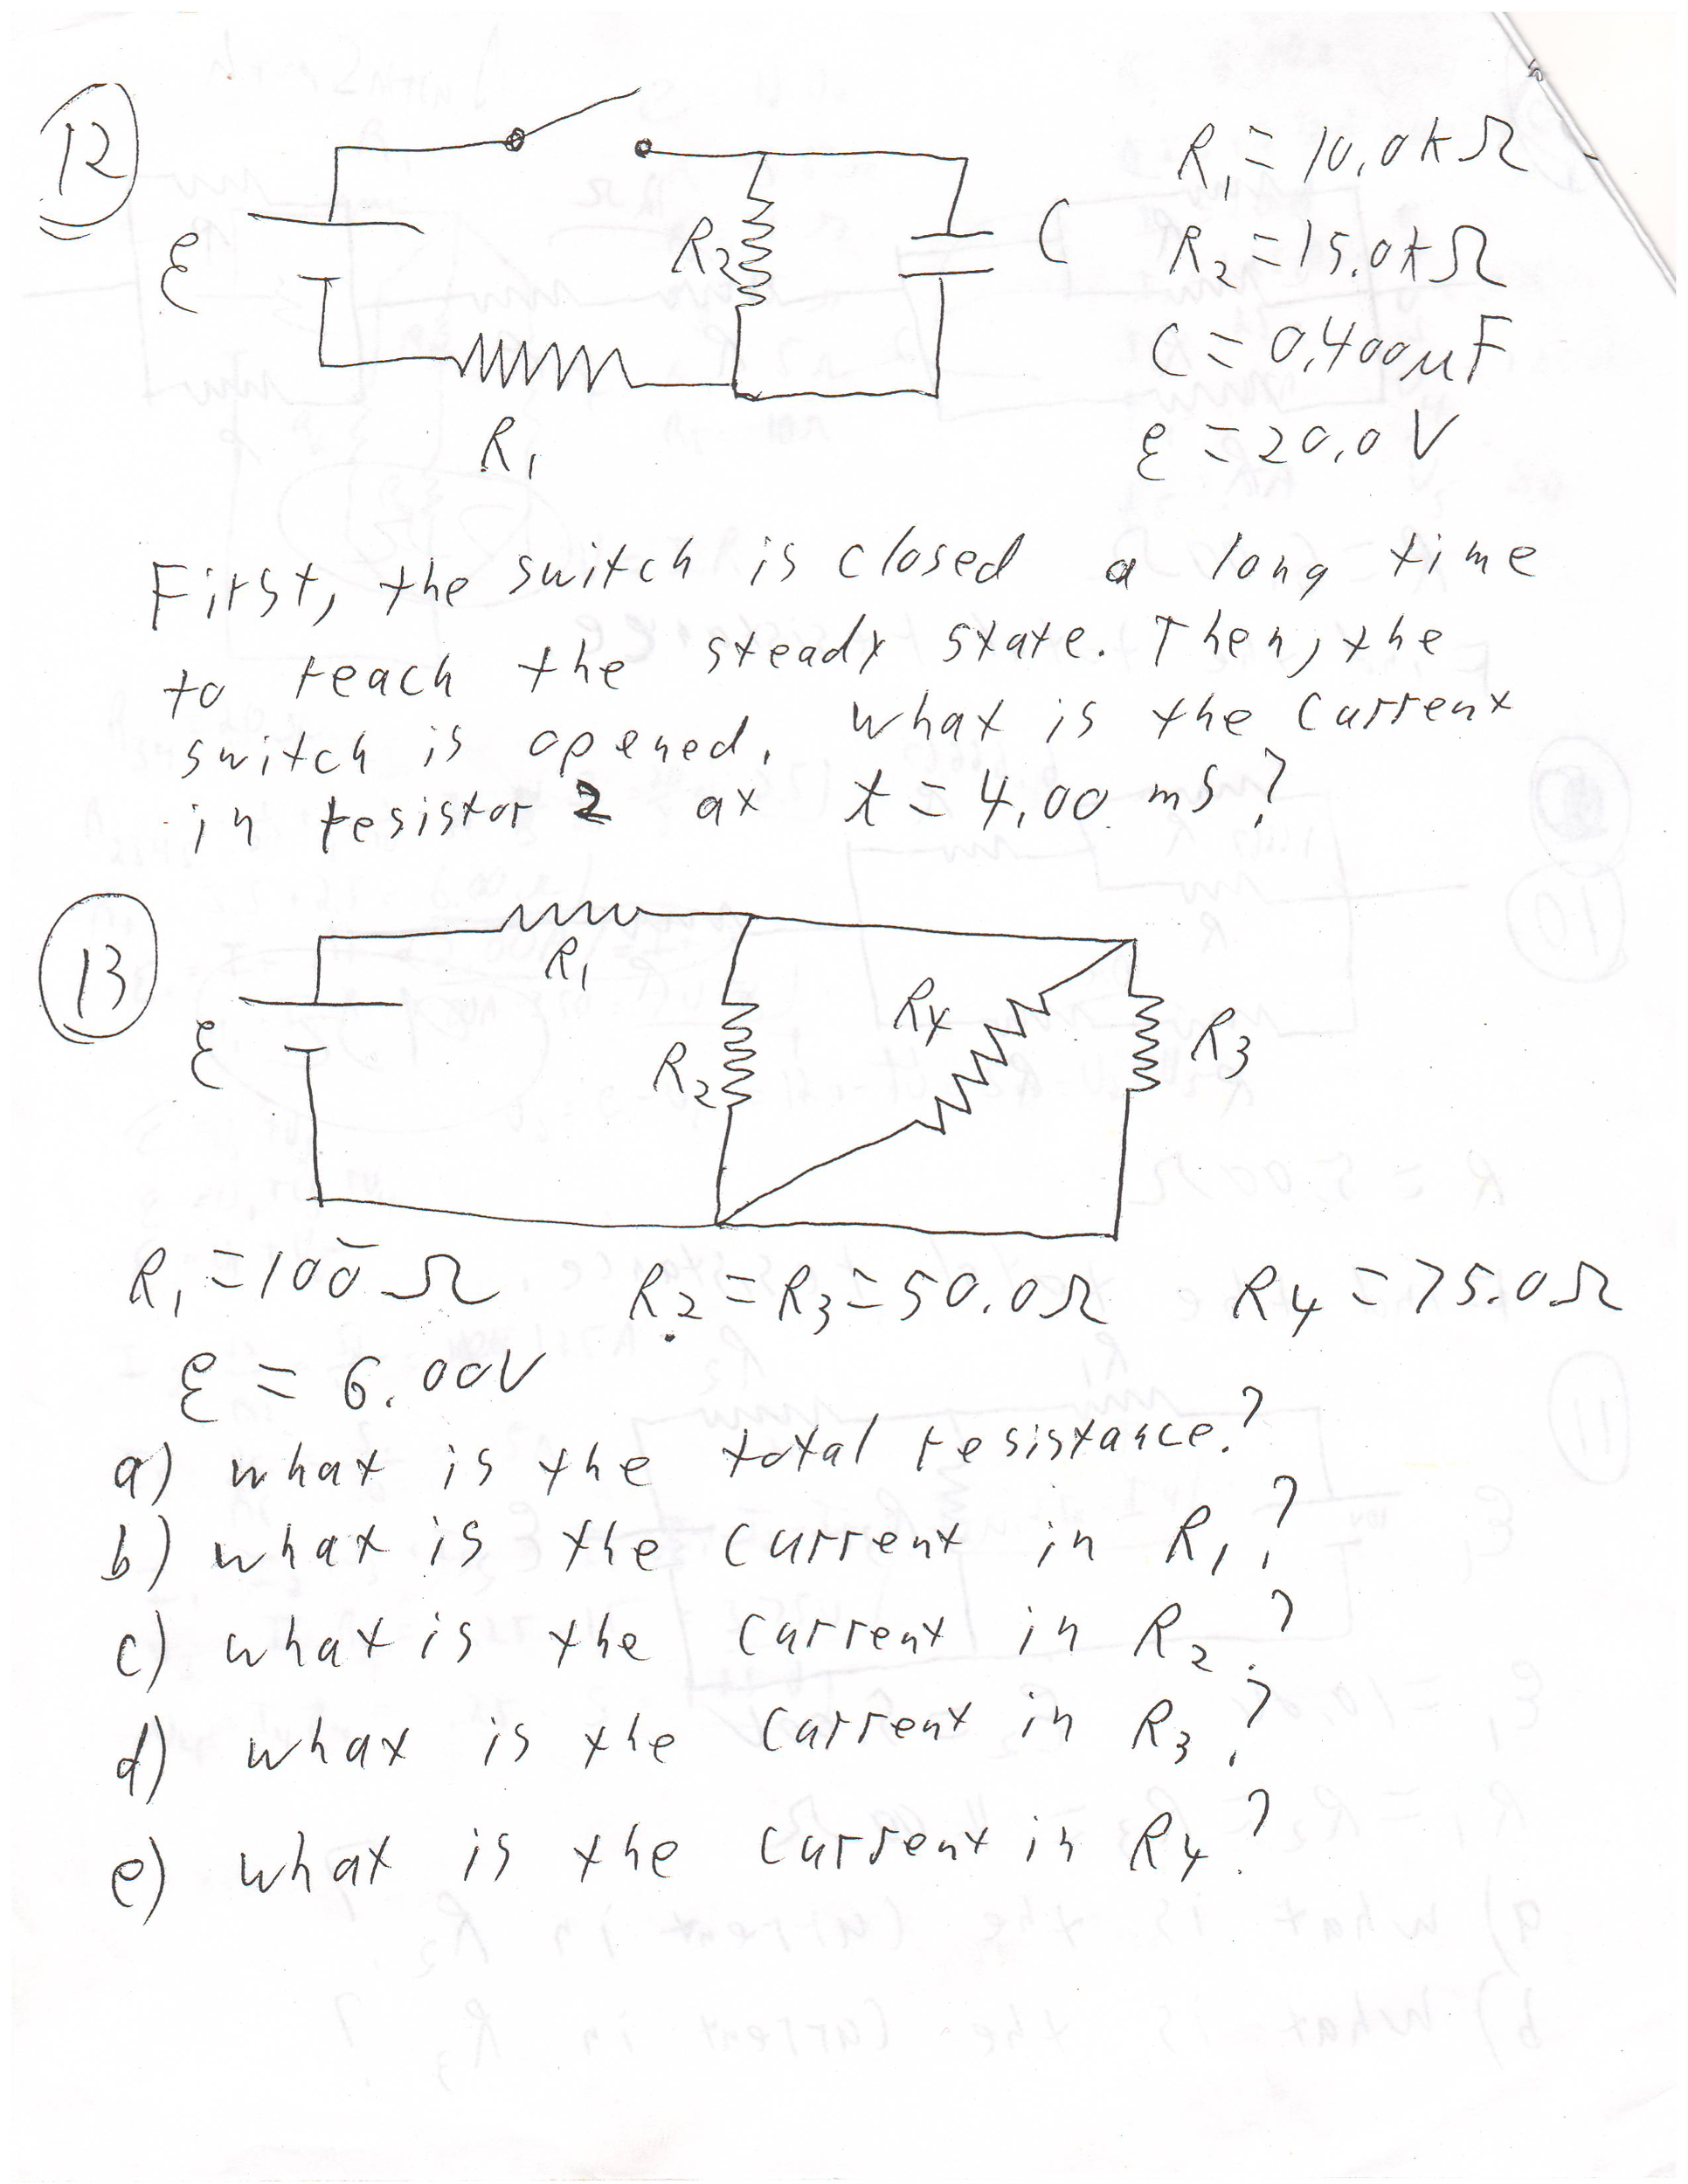 12
R₁ = 10.0kΩ
R₂ = 15.0kΩ
C = 0.400μF
ℰ = 20.0 V
ℰ
R₂
C
R₁
First, the switch is closed a long time
to reach the steady state. Then, the
switch is opened. What is the current
in resistor 2 at t = 4.00 ms?
13
R₁
ℰ
R₂
R₄
R₃
R₁ = 100̄ Ω R₂ = R₃ = 50.0Ω R₄ = 75.0Ω
ℰ = 6.00V
a) what is the total resistance?
b) what is the current in R₁?
c) what is the current in R₂?
d) what is the current in R₃?
e) what is the current in R₄?